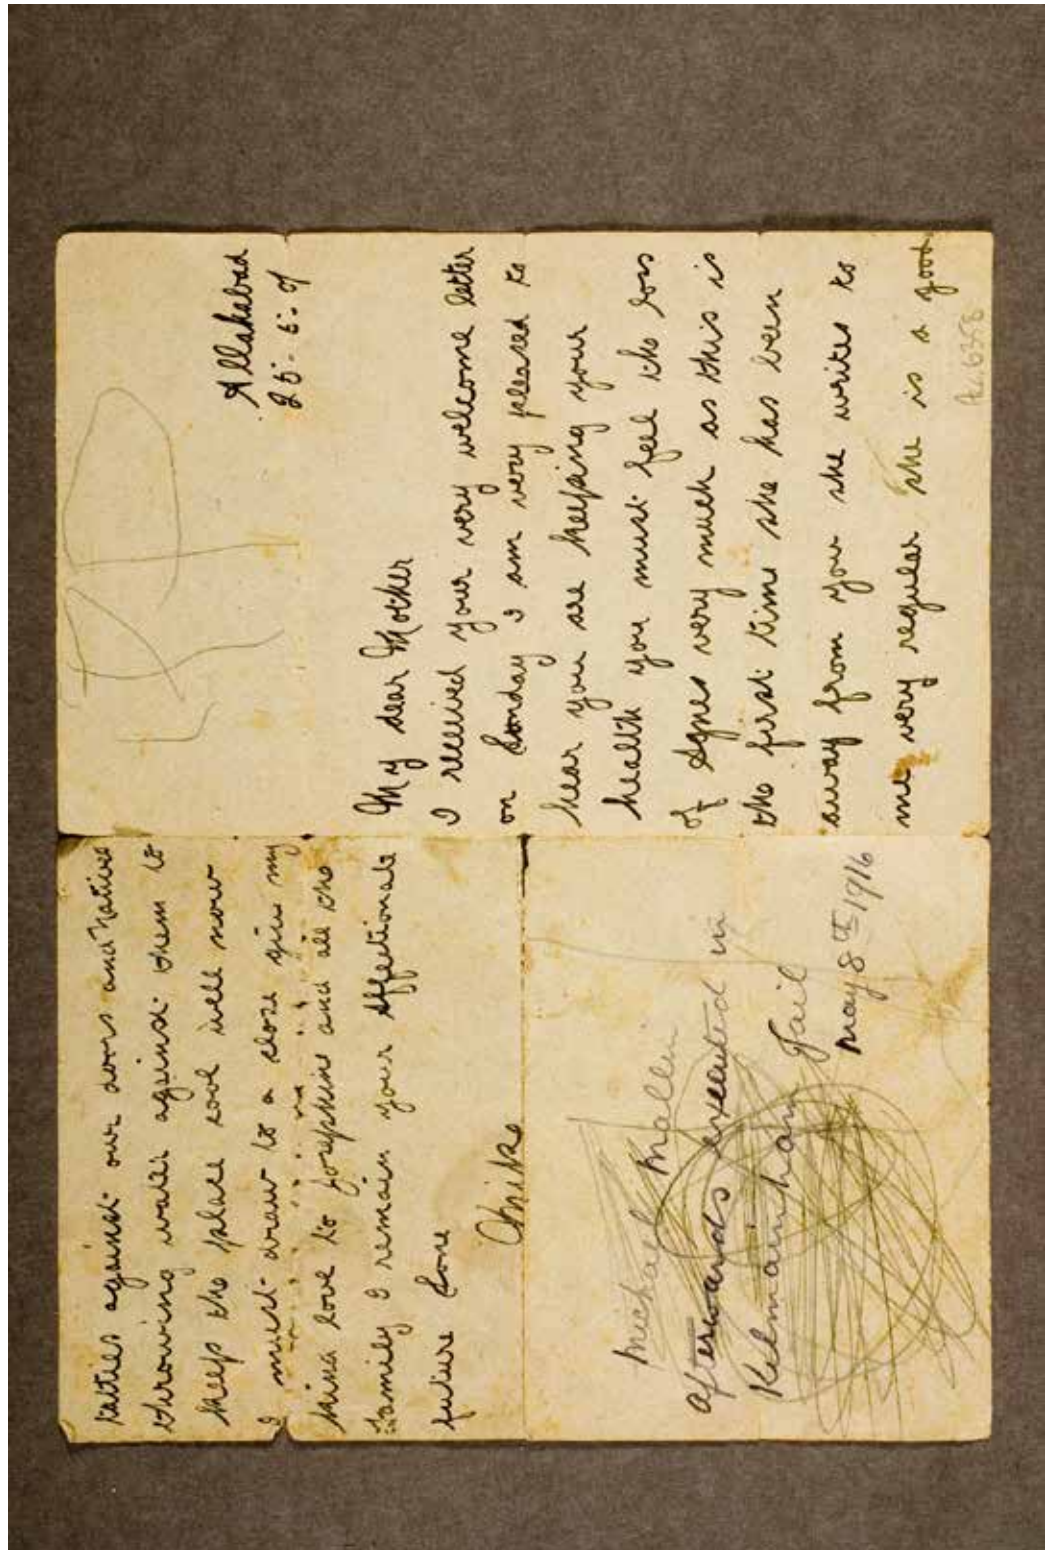 Allahabad
My dear Mother
I received your very welcome letter
on Sonday I am very pleased to
hear you are keeping your
health you must feel the loss
of Agnes very much as this is
the first time she has been
away from you she writes to
me very regular she is a good
tatties against our doors and natives
throwing water against them to
keeps the place cool well now
I must draw to a close give my
kind love to and all the
Family I remain your affectionate
future Sone
Mike
Michael Mallin
afterwards executed in
Kilmainham Jail
May 8th 1916